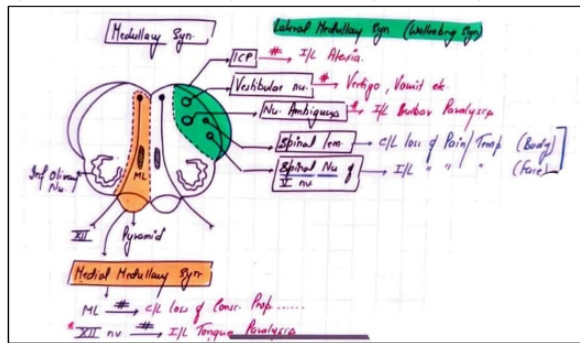 Medullary Syn.
Lateral Medullary Syn (Wallenberg Syn)
ICP # I/L Ataxia.
Vestibular nu. # Vertigo, Vomit etc.
Nu. Ambiguus # I/L Bulbar Paralysis
Spinal lem. C/L loss of Pain/Temp (Body)
Spinal Nu of V nv. I/L " " " (Face)
ML
Inf Olivary Nu.
XII
Pyramid
Medial Medullary Syn
ML # C/L loss of Consc. Prop......
* XII nv # I/L Tongue Paralysis